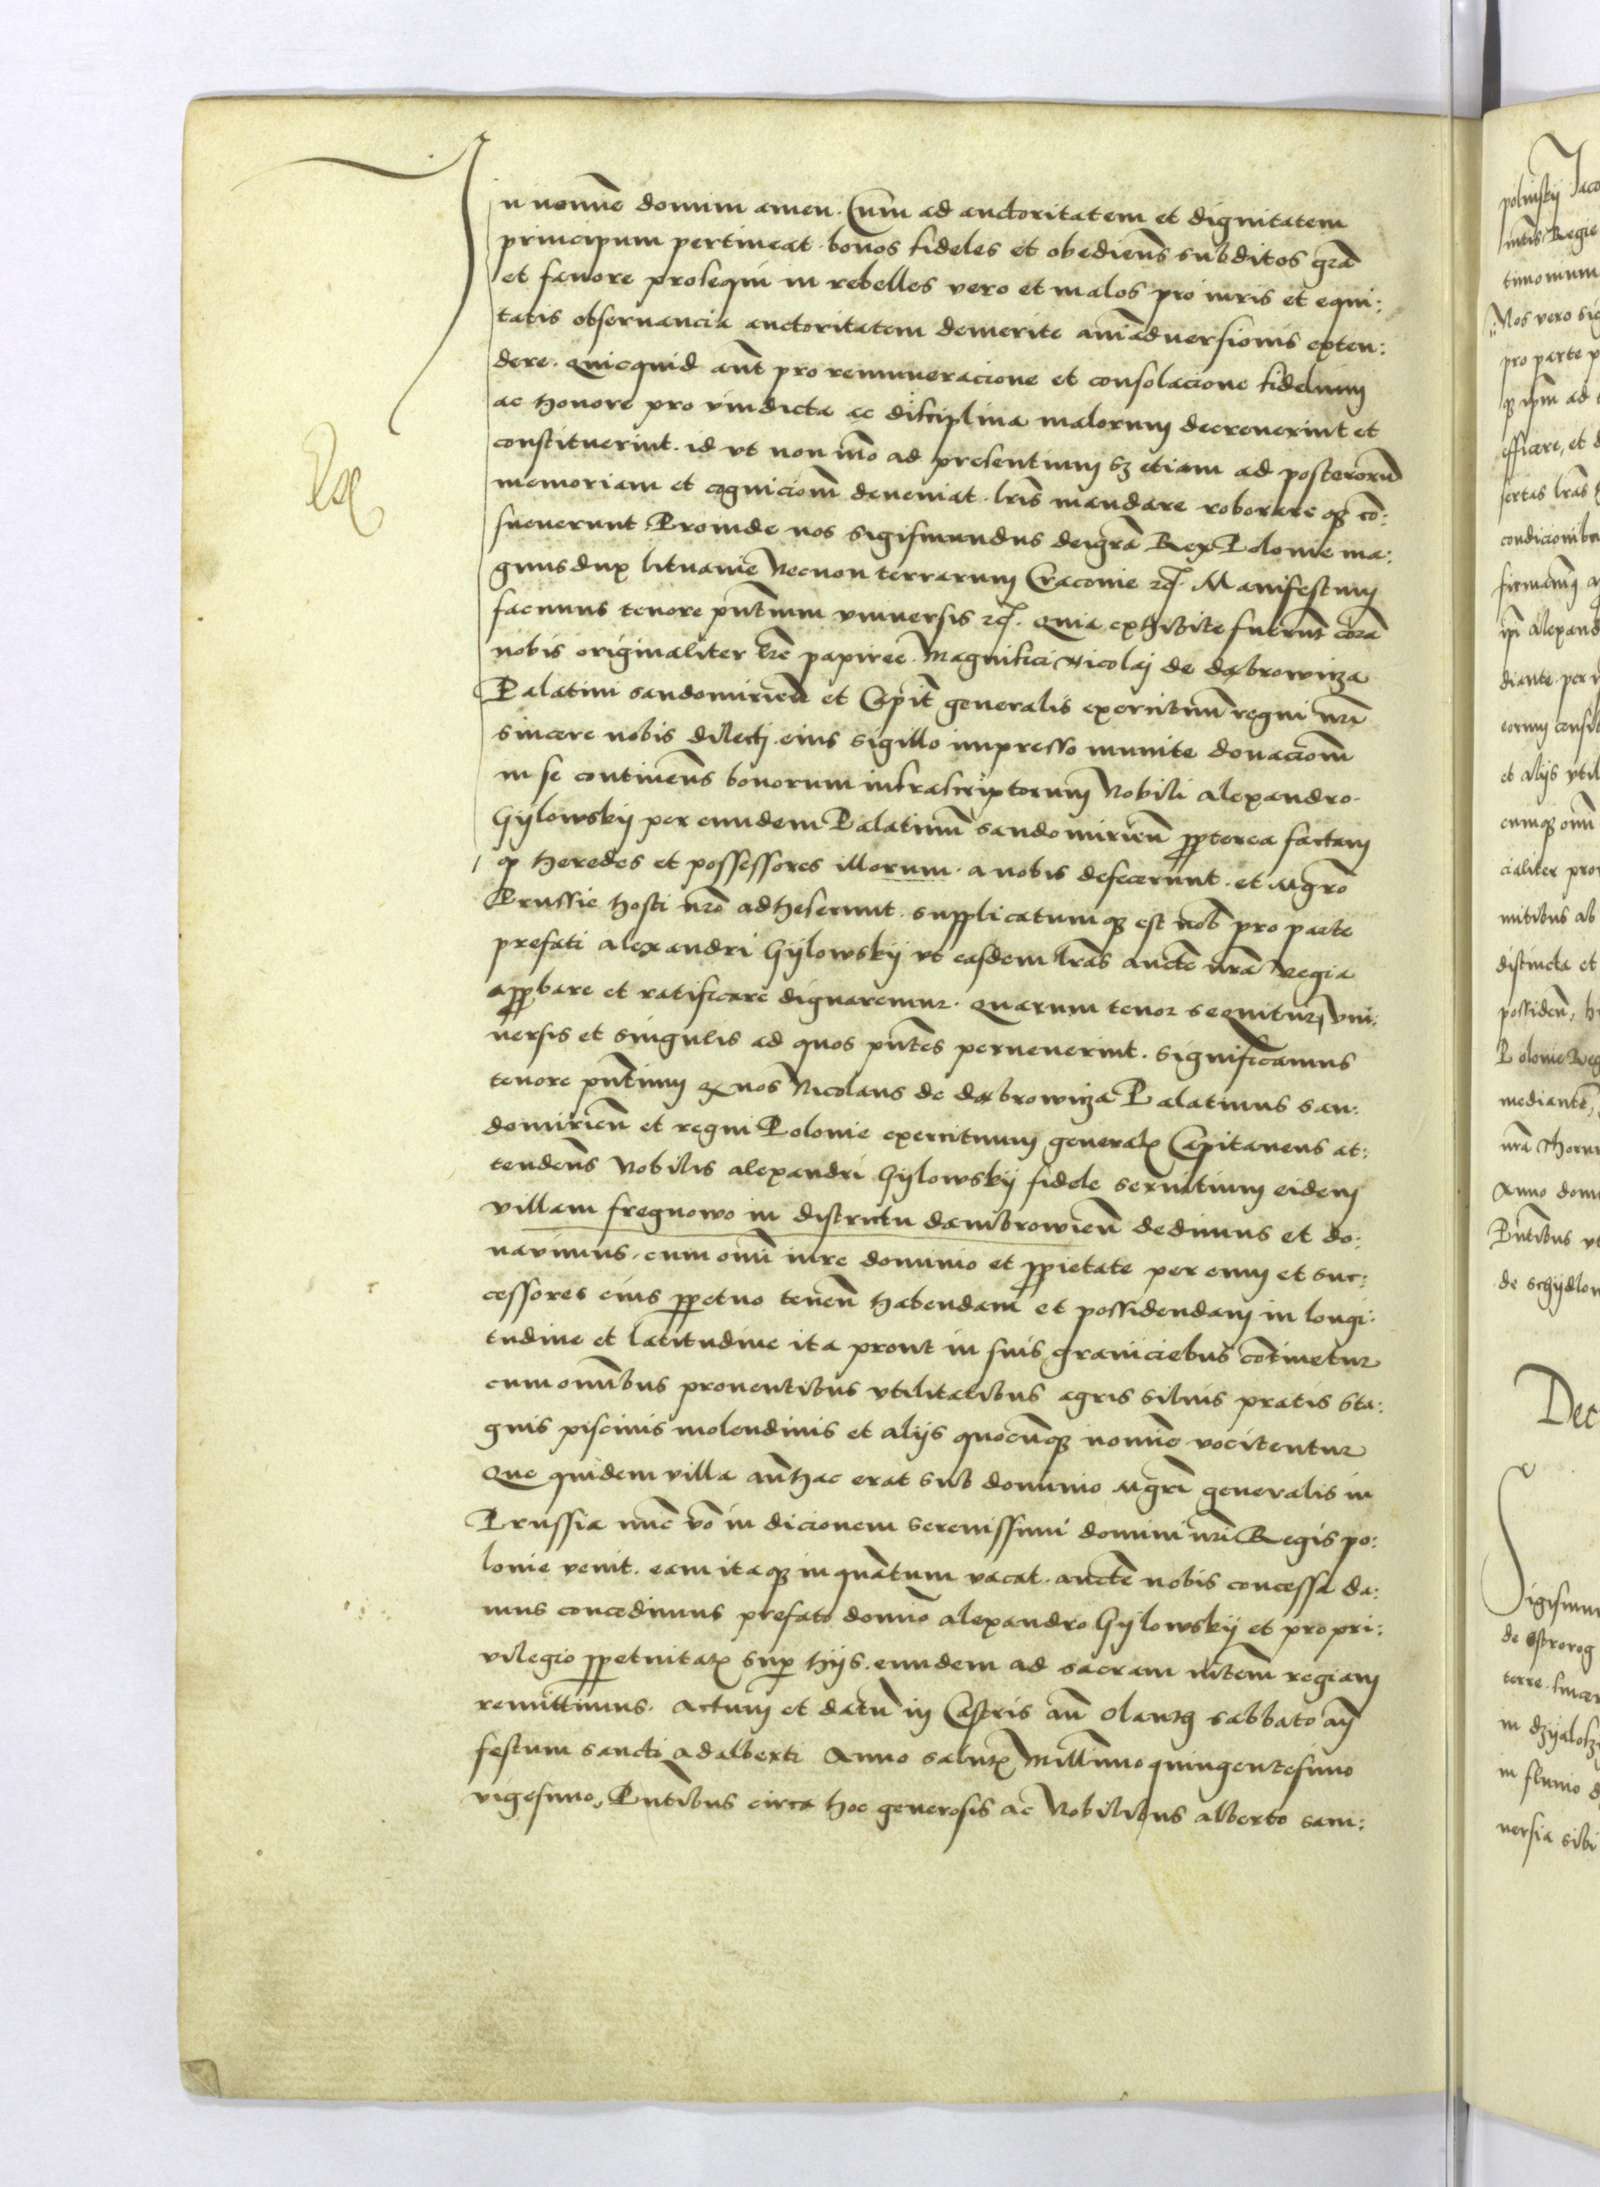 In nomine domini amen. Cum ad auctoritatem et dignitatem
principum pertineat. bonos fideles et obediens subditos gra͞
et fauore prosequi in rebelles vero et malos pro iuris et equi:
tatis obseruancia auctoritatem demerite aı͞aduersionis exten:
dere. Quicquid aut͞ pro remuneracione et consolacione fidelium
ac honore pro vindicta ac disciplina malorum decreuerint et
constituerint. id vt non mo͞ ad presentium sꝫ etiam ad posteroru͞
memoriam et cognicio͞m deueniat. lr͞is mandare roborareqꝫ co͞:
sueuerunt Proinde nos Sigismundus dei gra͞ Rex Polonie ma:
gnus dux lituanie Necnon terrarum Cracouie ⁊c͞. Manifestum
facimus tenore pn͞tium vniuersis ⁊c͞. Quia exhibite fuerunt cora͞
nobis originaliter lr͞e papiree Magnifici Nicolaj de dąbrowicza
Palatini sandomirien͞ et Capit͞ generalis exercituum regni nr͞i
sincere nobis dilecti eius sigillo impresso munite donacio͞m
in se continen͞s bonorum infrascriptorum Nobili alexandro
Gijlowskij per eundem Palatinu͞ sandomirien͞ ꝓpterea factam
ꝙ heredes et possessores illorum. a nobis defecerunt. et Mgr͞o
Prussie hosti nr͞o adheserunt. supplicatumqꝫ est nob͞ pro parte
prefati alexandri Gijlowskij vt easdem lr͞as aucte͞ nr͞a Regia
apꝓbare et ratificare dignaremur. Quarum tenor sequitur, Vni:
uersis et singulis ad quos pn͞tes peruenerint. significamus
tenore pn͞tium ꝙ nos Nicolaus de dąbrowicza Palatinus san:
domirien͞ et regni Polonie exercituum general͞ Capitaneus at:
tenden͞s Nobilis alexandri Gijlowskij fidele seruitium eidem
villam fregnowo in districtu dambrowien͞ dedimus et do:
nauimus. cum omı͞ iure dominio et ꝓprietate per eum et suc:
cessores eius ꝑpetuo tenen͞ habendam et possidendam in longi:
tudine et latitudine ita prout in suis graniciebus co͞tinetur
cum omı͞bus prouentibus vtilitatibus agris siluis pratis sta:
gnis piscinis molendinis et alijs quocu͞qꝫ nomı͞e vocitentur
Que quidem villa an͞hac erat sub dominio Mgr͞i generalis in
Prussia nu͞c vo͞ in dicionem serenissimi domini nr͞i Regis po:
lonie venit. eam itaqꝫ inqua͞tum vacat. aucte͞ nobis concessa da:
mus concedimus prefato domı͞o alexandro Gijlowskij et pro pri:
vilegio ꝑpetuitatis sup͞ hijs. eundem ad sacram mtem͞ regiam
remittimus. Actum et datu͞ in Castris an͞ Olantz sabbato an͞
festum sancti adalberti Anno salutis Millı͞mo quingentesimo
vigesimo, Pn͞tibus circa hoc generosis ac Nobilibus alberto sam: